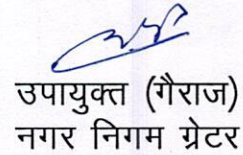 उपायुक्त (गैराज)
नगर निगम ग्रेटर